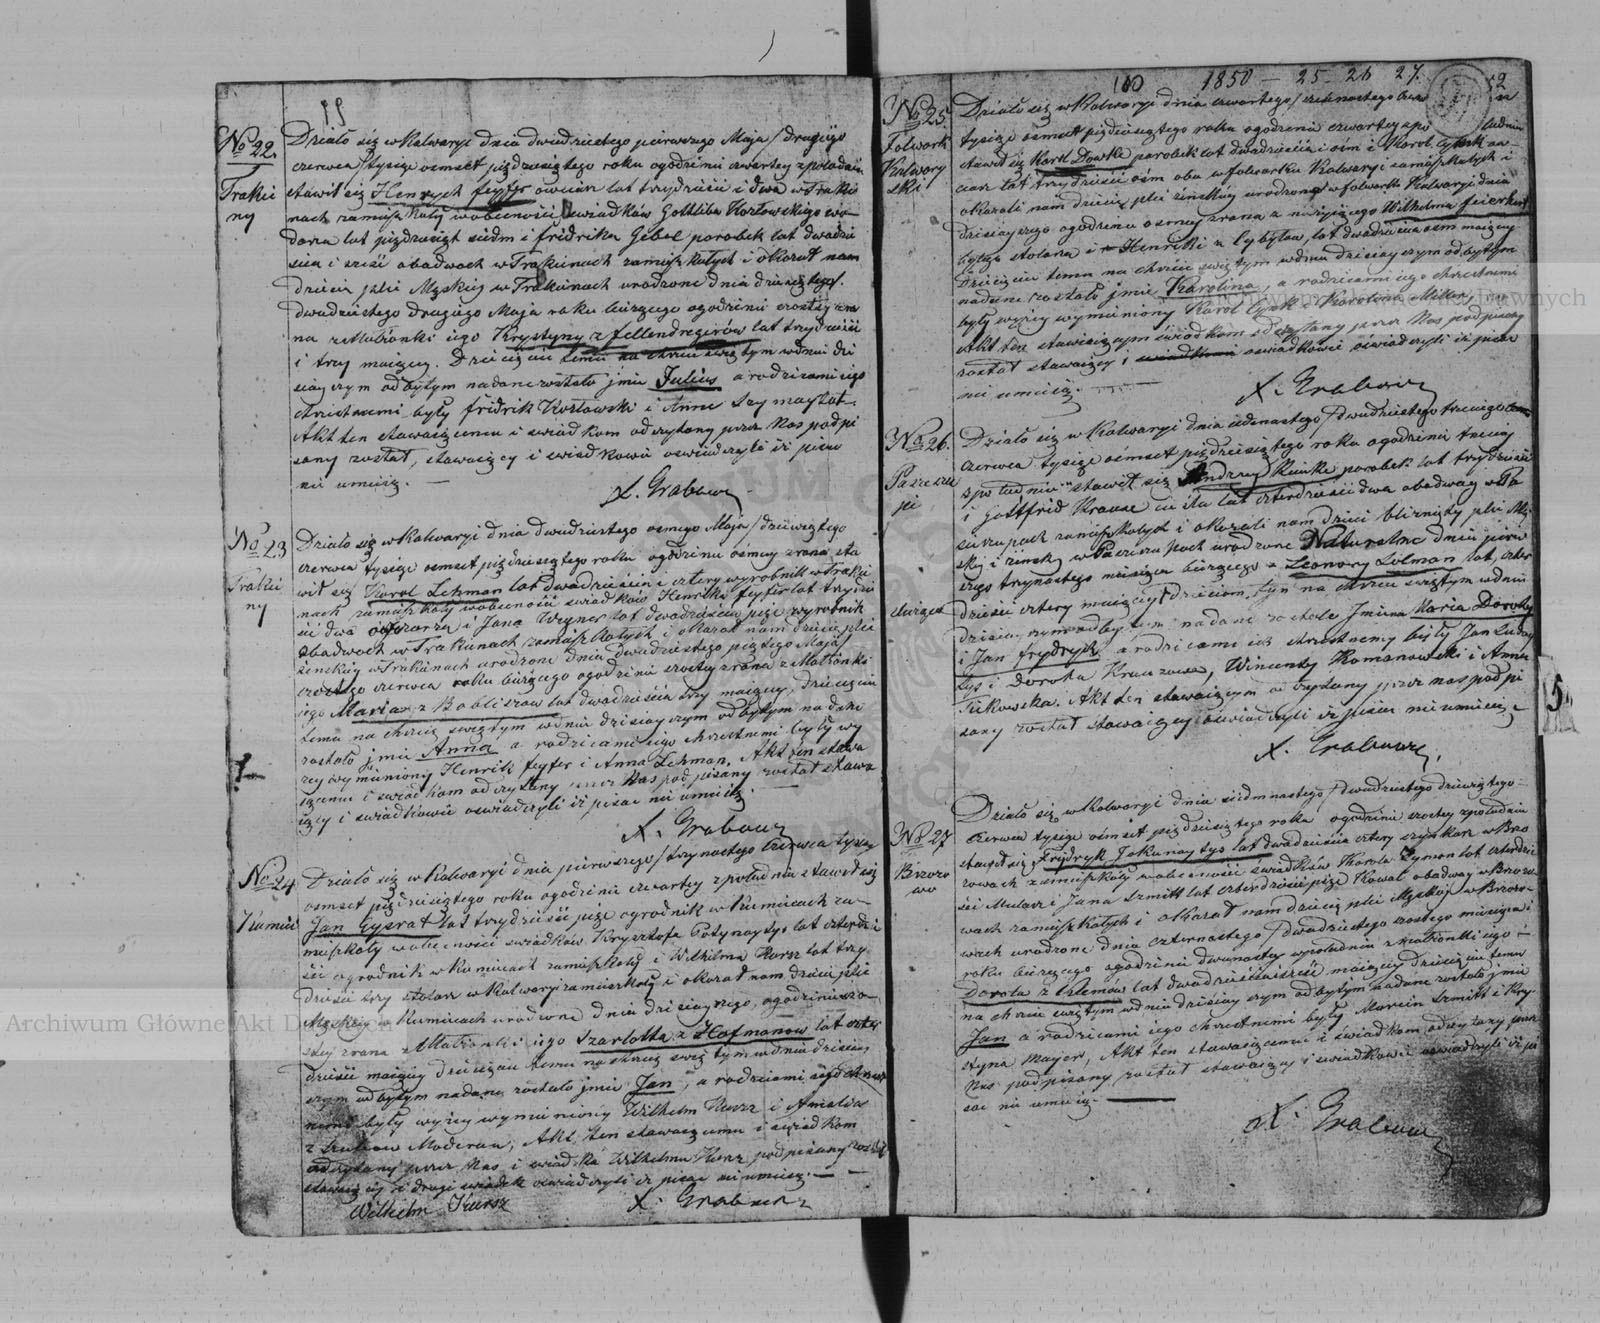 99
No 22.
Trakie
ny
Działo się w Kalwaryi dnia dwudziestego pierwszego Maja / drugiego
czerwca / tysiąc osmset pięćdziesiątego roku o godzinie czwartey z południa
stawił się Henrych feyfer owczarz lat trzydzieści i dwa w Trakie
nach zamieszkały w obecności świadków Gottliba Kozłowskiego wo-
dara lat pięćdziesiąt siedm i fridrika Gebel parobek lat dwadzie
ścia i sześć obadwoch w Trakienach zamieszkałych i okazał nam
dziecie płci Męskiey w Trakienach urodzone dnia dziesiątego /
dwudziestego drugiego Maja roku bieżącego o godzinie szostey zra
na z Małżonki iego Krystyny z fellendregierów lat trzydzieści
i trzy maiącey. Dziecięciu temu na chrzcie świętym w dniu dzi
sieyszym odbytym nadane zostało jmie Julius a rodzicami iego
chrzestnemi byli fridrik Kozłowski i Anna Szymaytat.
Akt ten stawaiącemu i świadkom odczytany przez Nas podpi
sany został, stawaiący i świadkowie oświadczyli iż pisać
nie umieią. —
X. Grabow
No 23
Trakie
ny
Działo się w Kalwaryi dnia dwudziestego osmego Maja / dziewiątego
czerwca tysiąc osmset pięćdziesiątego roku o godzinie ósmey zrana sta
wił się Karol Lehman lat dwadzieścia cztery wyrobnik w Trakie
nach zamieszkały w obecności świadków Henrika feyfer lat trzydzie
ści dwa owczarza i Jana Wegner lat dwadzieścia pięć wyrobnik
obadwoch w Trakienach zamieszkałych i okazał nam dziecie płci
żenskiey w Trakienach urodzone dnia dwudziestego piątego Maja
szostego czerwca roku bieżącego o godzinie szostey zrana z Małżonki
iego Marian z Bobliszow lat dwadzieścia trzy maiącey, Dziecięciu
temu na chrzcie świętym w dniu dzisieyszym odbytym nadane
zostało jmie Anna a rodzicami iego chrzestnemi byli wy
zey wymieniony Henrik feyfer i Anna Lehman. Akt ten stawa
iącemu i świadkom odczytany przez Nas podpisany został stawa
iący i świadkowie oświadczyli iż pisać nie umieią.
X. Grabow
No 24
Kumiec
Działo się w Kalwaryi dnia pierwszego / trzynastego Czerwca tysiąc
osmset pięćdziesiątego roku o godzinie czwartey z południa stawił się
Jan Eysrat lat trzydzieści pięć ogrodnik w Kumiecach za-
mieszkały w obecności świadków Krysztofa Potynaytys lat czterdzie
ści ogrodnik w Kumiecach zamieszkały i Wilhelma Kursz lat trzy
dzieści trzy stolarz w Kalwaryi zamieszkały i okazał nam dziecie płci
Męskiey w Kumiecach urodzone dnia dzisieyszego, o godzinie szo-
stey zrana z Małżonki iego Szarlotta z Hofmanow lat czter
dzieści maiącey dziecięciu temu na chrzcie świętym w dniu dzisiey
szym odbytym nadane zostało jmie Jan, a rodzicami iego chrzest
nemi byli wyżey wymieniony Wilhelm Kursz i Amalia
z Moderau, Akt ten stawaiącemu i świadkom
odczytany przez Nas i świadka Wilhelma Kursz podpisany został
stawaiący i drugi świadek oświadczyli iż pisać nie umieią. —
Wilhelm Kursz X. Grabow
100 1850 — 25. 26 27.
No 25
Folwark
Kalwary
ski
Działo się w Kalwaryi dnia czwartego / szesnastego
tysiąc osmset pięćdziesiątego roku o godzinie czwartey z po ludniu
stawił się Karol Dowtke parobek lat dwadzieścia i ośm i Karol Cysik ow-
czarz lat trzydzieści ośm oba w folwarku Kalwaryi zamieszkałych i
okazali nam dziecie płci żeńskiey urodzone w folwarku Kalwaryi dnia
dzisieyszego o godzinie osmey zrana z Wilhelma feierherd
byłego stolara i Henrietti z Cybylow, lat dwadzieścia osm maiącey
Dziecięciu temu na chrzcie świętym w dniu dzisieyszym odbytym
nadane zostało jmie Karolina, a rodzicami iego chrzestnemi
byli wyżey wymieniony Karol Cysik i Karolina Miller
Akt ten stawaiącym świadkom odczytany przez Nas podpisany
został stawaiący i świadkowie oświadczyli iż pisać
nie umieią.
X. Grabow
No 26.
Paszeszu
pie
dwigen
Działo się w Kalwaryi dnia iedenastego / dwudziestego trzeciego
czerwca tysiąc ośmset pięćdziesiątego roku o godzinie trzeciey
z południa stawił się Andrzey Kunke parobek lat trzydzieści
i Gottfrid Krause cieśla lat czterdzieści dwa obadway w Pa
szeszupach zamieszkałych i okazali nam dzieci bliznięty płci Mę
skiey i żenskiey w Paszeszupach urodzone Naturalne dnia pierw
szego trzynastego miesiąca bieżącego z Leonory Lolman lat czter
dzieści cztery maiącey, Dzieciom tym na chrzcie świętym w dniu
dzisieyszym odbytym nadane zostało jmiona Maria Dorothy
i Jan frydryk a rodzicami ich chrzestnemi byli Jan Ludwy
tys i Dorota Krauzowa, Wincenty Romanowski i Anna
Sikowska. Akt ten stawaiącym odczytany przez nas podpi
sany został stawaiący oświadczyli iż pisać nie umieią
X. Grabow
No 27
Brzozo
wo
Działo się w Kalwaryi dnia siedmnastego / dwudziestego dziewiątego
Czerwca tysiąc ośmset pięćdziesiątego roku o godzinie szostey z południa
stawił się Frydryk Jokunaytys lat dwadzieścia cztery szynkarz w Brzo
zowach zamieszkały w obecności świadków Karola Zyman lat czterdzie
ści Mularz i Jana Szmitt lat czterdzieści pięć Kowal obadway w Brzozo
wach zamieszkałych i okazał nam dziecie płci Męskiey w Brzozo-
wach urodzone dnia czternastego / dwudziestego szostego miesiąca i
roku bieżącego o godzinie dwunastey w południe z Małżonki iego
Dorota z Klemow lat dwadzieścia sześć maiącey dziecięciu temu
na chrzcie świętym w dniu dzisieyszym odbytym nadane zostało jmie
Jan a rodzicami iego chrzestnemi byli Marcin Szmitt i Kry-
styna Mayer, Akt ten stawaiącemu i świadkom odczytany przez
Nas podpisany został stawaiący i świadkowie oświadczyli iż pi
sać nie umieią.
X. Grabow
Archiwum Główne Akt Dawnych
Archiwum Główne Akt Dawnych